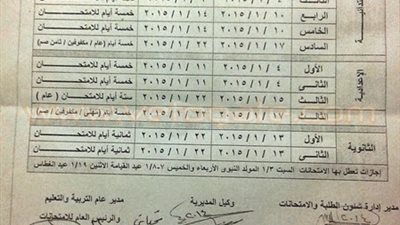 الرابع ٤ / ١ / ٢٠١٥ ١٤ / ١ / ٢٠١٥ خمسة أيام للامتحان
الخامس ٤ / ١ / ٢٠١٥ ١٤ / ١ / ٢٠١٥ خمسة أيام للامتحان
السادس ١٧ / ١ / ٢٠١٥ ٢٢ / ١ / ٢٠١٥ خمسة أيام (عام / متفوقين / ثامن صم)
الإعدادية
الأول ٤ / ١ / ٢٠١٥ ١١ / ١ / ٢٠١٥ خمسة أيام للامتحان
الثانى ٤ / ١ / ٢٠١٥ ١١ / ١ / ٢٠١٥ خمسة أيام للامتحان
الثالث ١٥ / ١ / ٢٠١٥ ٢٢ / ١ / ٢٠١٥ ستة أيام للامتحان ( عام )
الثالث ١٧ / ١ / ٢٠١٥ ٢٢ / ١ / ٢٠١٥ خمسة أيام (مهنى / متفوقين / صم)
الثانوية
الأول ١٣ / ١ / ٢٠١٥ ٢٢ / ١ / ٢٠١٥ ثمانية أيام للامتحان
الثانى ١٣ / ١ / ٢٠١٥ ٢٢ / ١ / ٢٠١٥ ثمانية أيام للامتحان
إجازات تعطل بها الامتحانات السبت ١/٣ المولد النبوى الأربعاء والخميس ١/٨،٧ عيد القيامة الاثنين ١/١٩ عيد الغطاس
مدير إدارة شئون الطلبة والامتحانات وكيل المديرية مدير عام التربية والتعليم
والرئيس العام للامتحانات